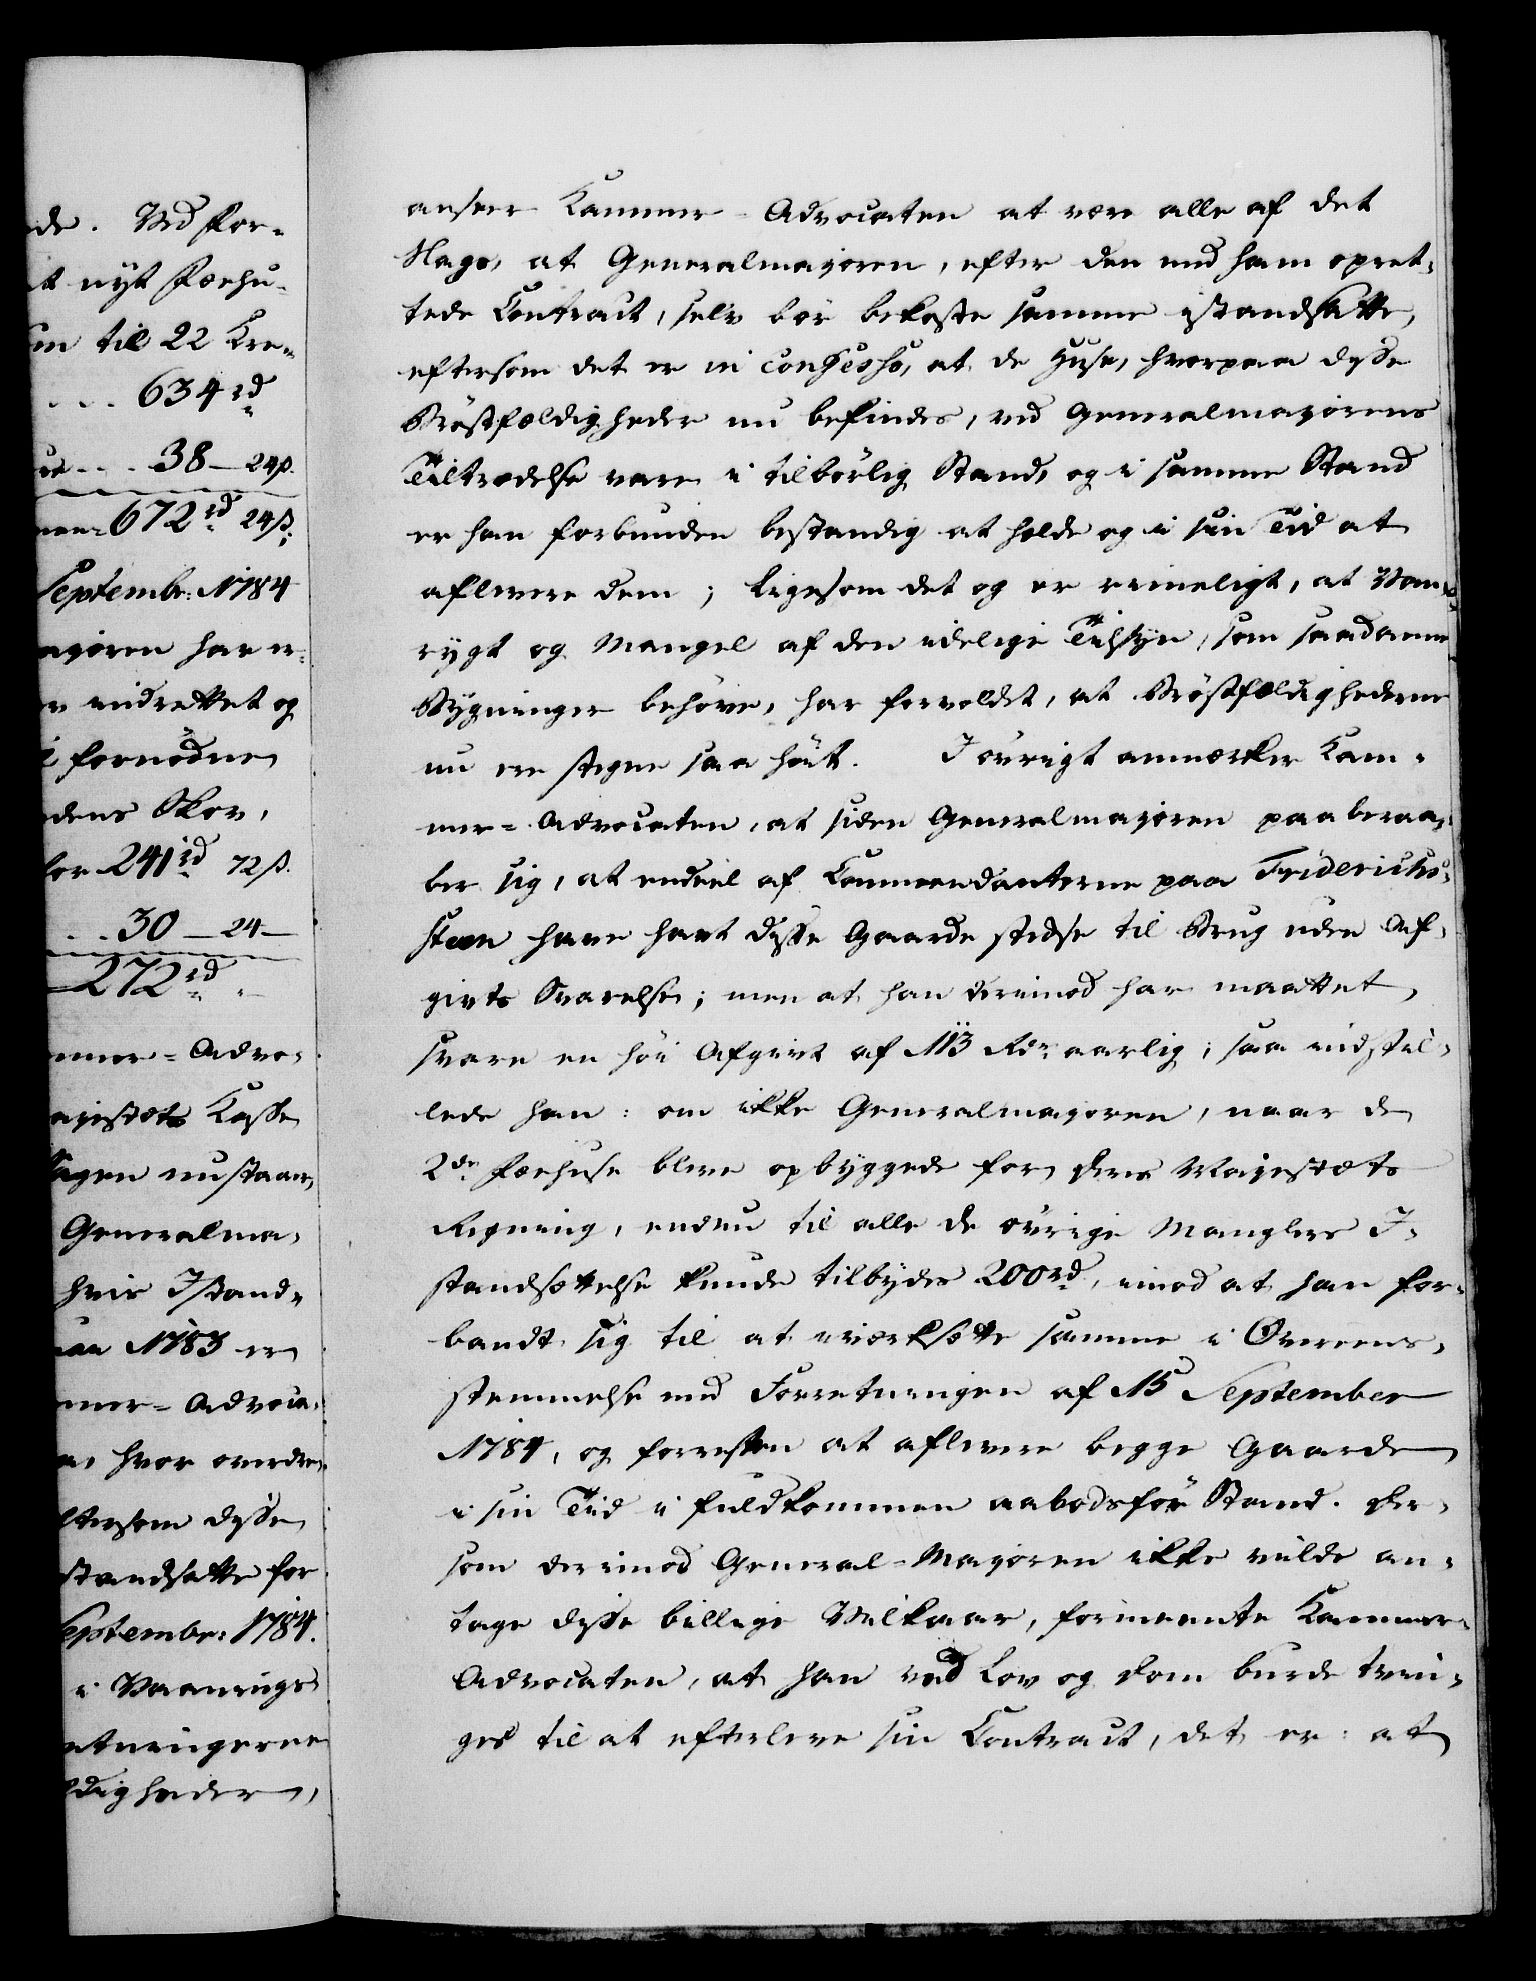 de. Ved for-
t nyt Fæehu-
til 22 Kre-
634 rd
38 - 24 ß.
672 rd 24 ß.
Septembr: 1784
ajoren har
indrettet og
fornødne
dens Skov,
for 241 rd 72 ß.
30 - 24 -
272 rd
mer-Advo-
ajestæts Kasse
Sagen nu staaer,
Generalma-
hvis Istand-
1783 er
mer-Advoca-
hvor overdre-
eftersom disse
standsatte for
Septembr: 1784.
i Vaanings
etningerne
digheder,
anseer Kammer-Advocaten at være alle af det
Slags, at Generalmajoren, efter den med ham opret-
tede Contract, selv bør bekoste samme istandsatte,
eftersom det er in confesso, at de Huse, hvorpaa disse
Brøstfældigheder nu befindes, ved Generalmajorens
Tiltrædelse vare i tilbørlig Stand, og i samme Stand
er han forbunden bestandig at holde og i sin Tid at
aflevere dem; ligesom det og er rimeligt, at Van-
rygt og Mangel af den idelige Tilsyn, som saadanne
Bygninger behøve, har forvoldet, at Brøstfældighederne
nu ere stegne saa høit. I øvrigt anmærker Kam-
mer-Advocaten, at siden Generalmajoren paaberaa-
ber sig, at endeel af Commendanterne paa Friderichs-
steen have havt disse Gaarde stedse til Brug uden Af-
givts Svarelse; men at han derimod har maattet
svare en høi Afgivt af 113 Rdr aarlig; saa indstil-
lede han: om ikke Generalmajoren, naar de
2de Fæehuse bleve opbyggede for Deres Majestæts
Regning, endnu til alle de øvrige Manglers I-
standsættelse kunde tilbydes 200 rd, imod at han for-
bandt sig til at iværksætte samme i Overeens-
stemmelse med Forretningen af 15 September
1784, og forresten at aflevere begge Gaarde
i sin Tid i fuldkommen aabodsfør Stand. Der-
som derimod General-Majoren ikke vilde an-
tage disse billige Vilkaar, formeente Kammer-
Advocaten, at han ved Lov og Dom burde tvin-
ges til at efterleve sin Contract, det er: at